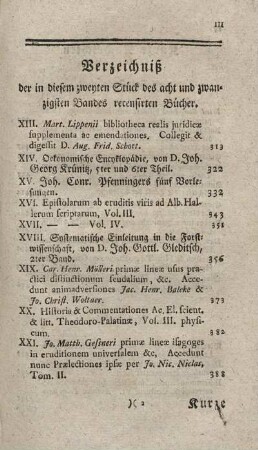 III
Verzeichniß
der in diesem zweyten Stück des acht und zwan-
zigsten Bandes recensirten Bücher.
XIII. Mart. Lippenii bibliotheca realis juridicæ
supplementa ac emendationes, Collegit &
digessit D. Aug. Frid. Schott. 313
XIV. Oekonomische Encyklopädie, von D. Joh.
Georg Krünitz, 5ter und 6ter Theil. 322
XV. Joh. Conr. Pfenningers fünf Vorle-
sungen. 332
XVI. Epistolarum ab eruditis viris ad Alb. Hal-
lerum scriptarum, Vol. III. 343
XVII. — — Vol. IV. 351
XVIII. Systematische Einleitung in die Forst-
wissenschaft, von D. Joh. Gottl. Gleditsch,
2ter Band. 356
XIX. Car. Henr. Mülleri primæ lineæ usus pra-
ctici distinctionum feudalium, &c. Acce-
dunt animadversiones Jac. Henr. Baleke &
Jo. Christ. Woltaer. 373
XX. Historia & Commentationes Ac. El. scient.
& litt. Theodoro-Palatinæ, Vol. III. physi-
cum. 382
XXI. Jo. Matth. Gesneri primæ lineæ isagoges
in eruditionem universalem &c, Accedunt
nunc Prælectiones ipsæ per Jo. Nic. Niclas,
Tom. II. 388
)( 2 Kurze